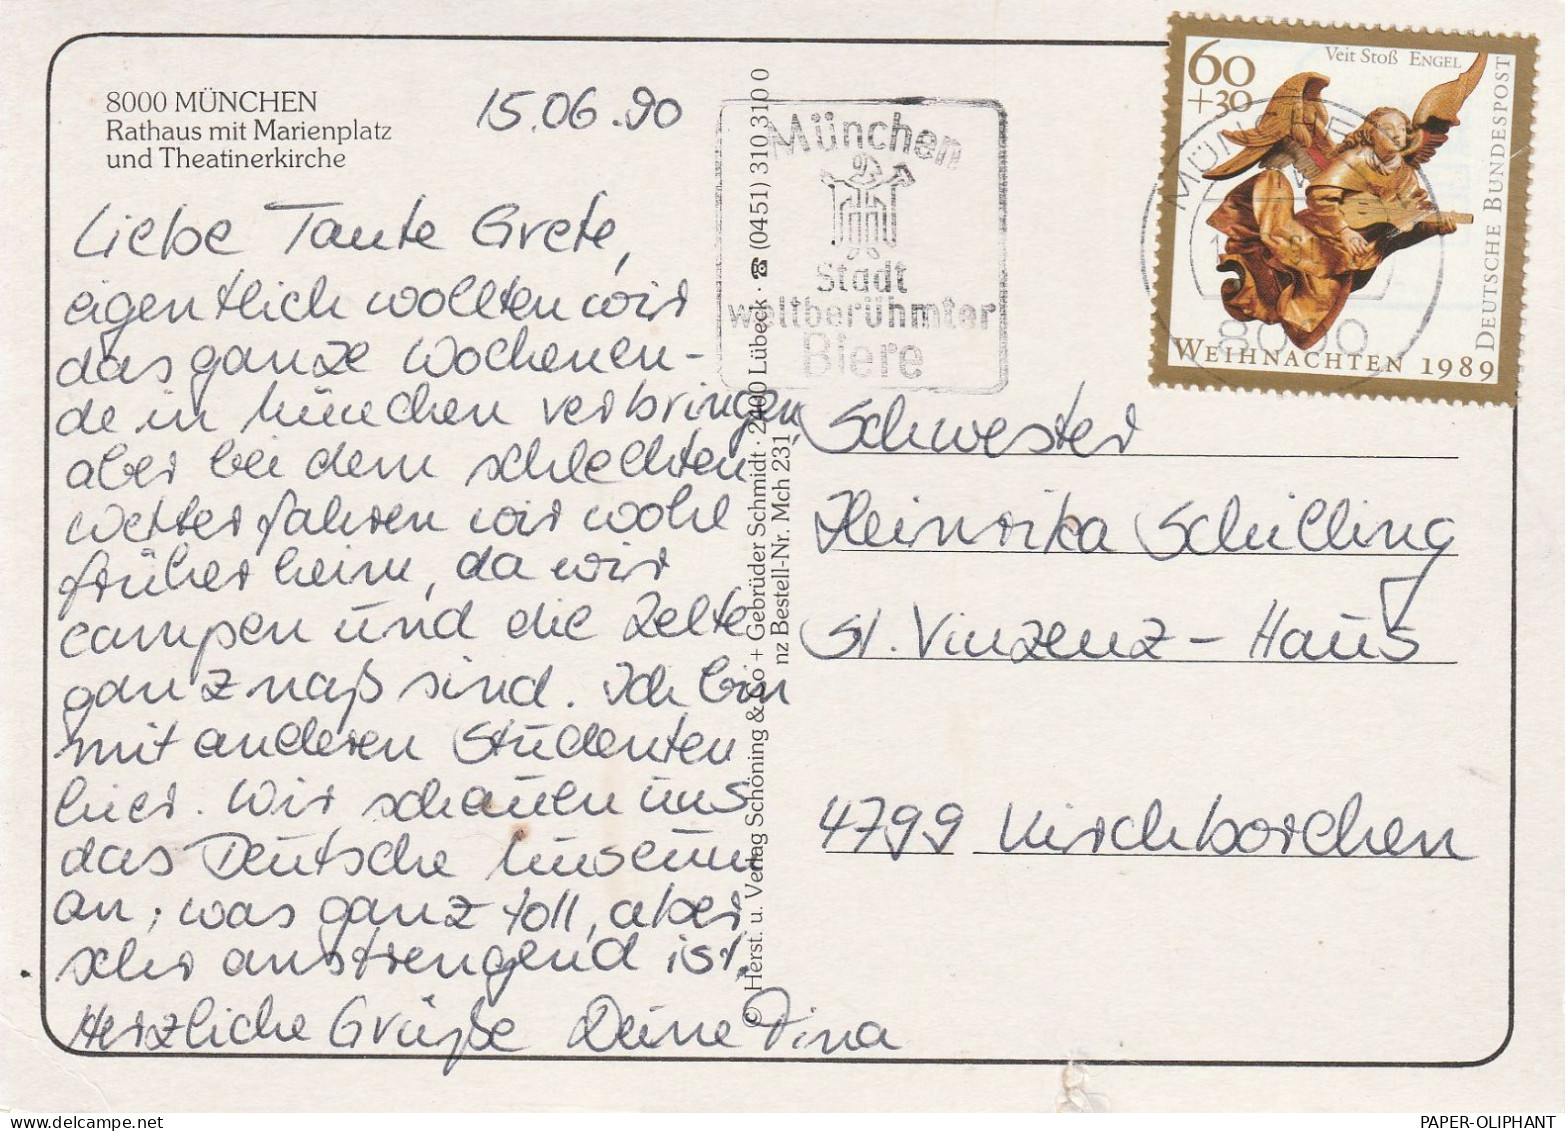 8000 MÜNCHEN
Rathaus mit Marienplatz
und Theatinerkirche
15.06.90
Liebe Tante Grete,
eigentlich wollten wir
das ganze Wochenen-
de in München verbringen
aber bei dem schlechten
Wetter fahren wir wohl
früher heim, da wir
campen und die Zelte
ganz naß sind. Ich bin
mit anderen Studenten
hier. Wir schauen uns
das Deutsche Museum
an, was ganz toll, aber
sehr anstrengend ist.
Herzliche Grüße Deine Tina
© Herst. u. Verlag Schöning & Co + Gebrüder Schmidt · 2400 Lübeck · ☎ (0451) 310 310 0
nz Bestell-Nr. Mch 231
München
Stadt
weltberühmter
Biere
60
+30
Veit Stoß ENGEL
DEUTSCHE BUNDESPOST
WEIHNACHTEN 1989
MÜNCHEN
8000
Schwester
Heinrika Schilling
St. Vinzenz-Haus
4799 Kirchborchen
PAPER-OLIPHANT